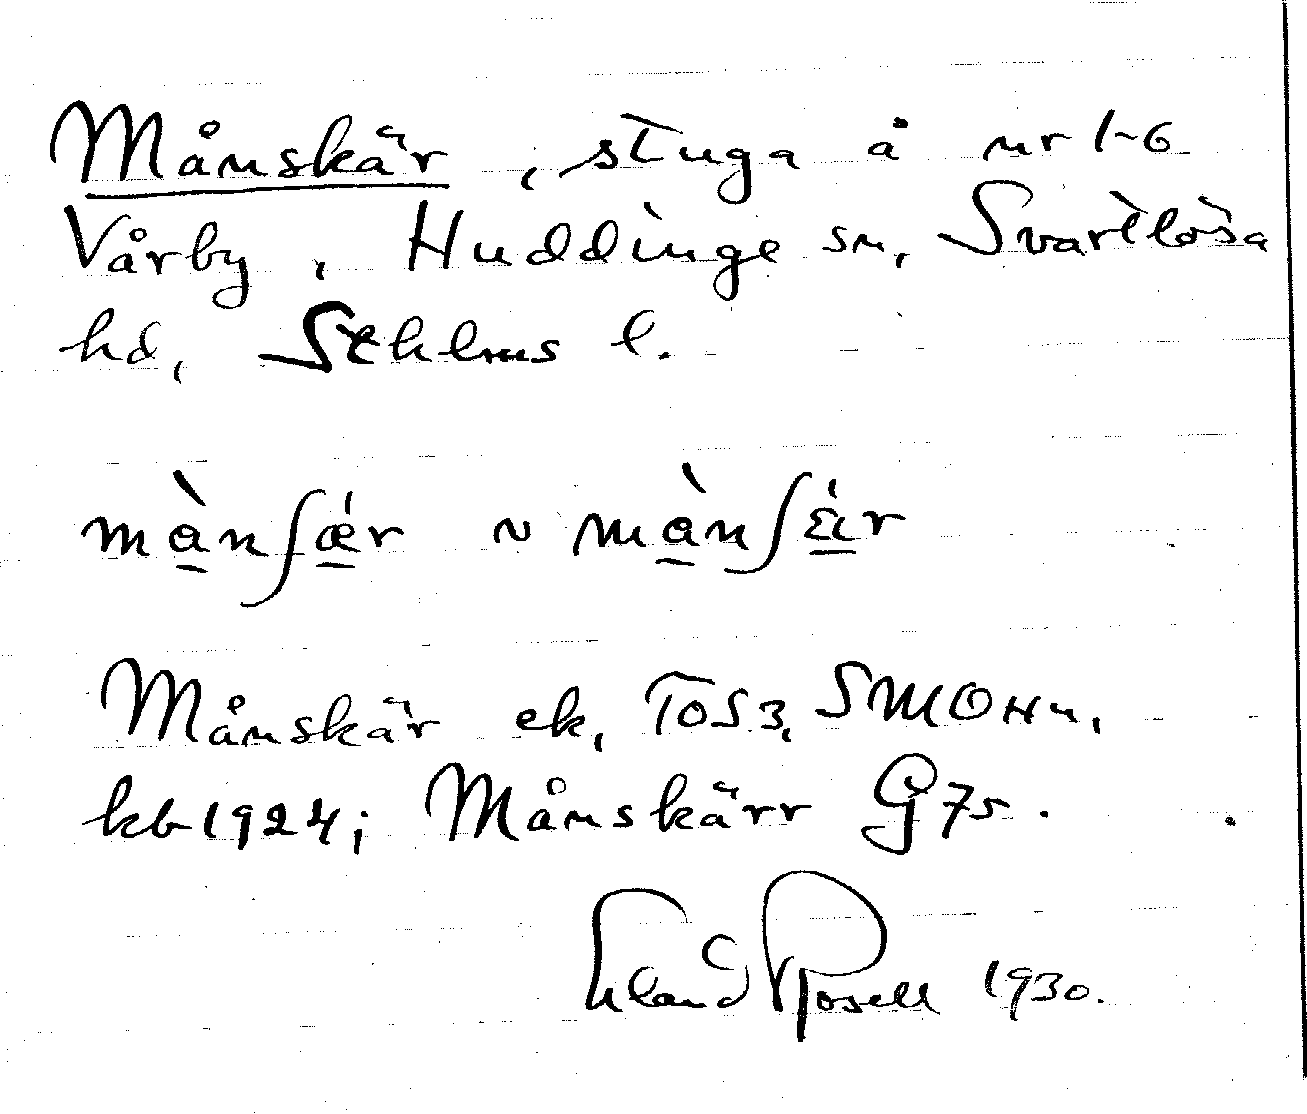 Månskär, stuga å nr 1-6
Vårby, Huddinge sn, Svartlösa
hd, Sthlms l.
mànʃǽr ~ mànʃέιr
Månskär ek, TOS3, SMOHn,
kb 1924; Månskärr G75.
Erland Rosell 1930.